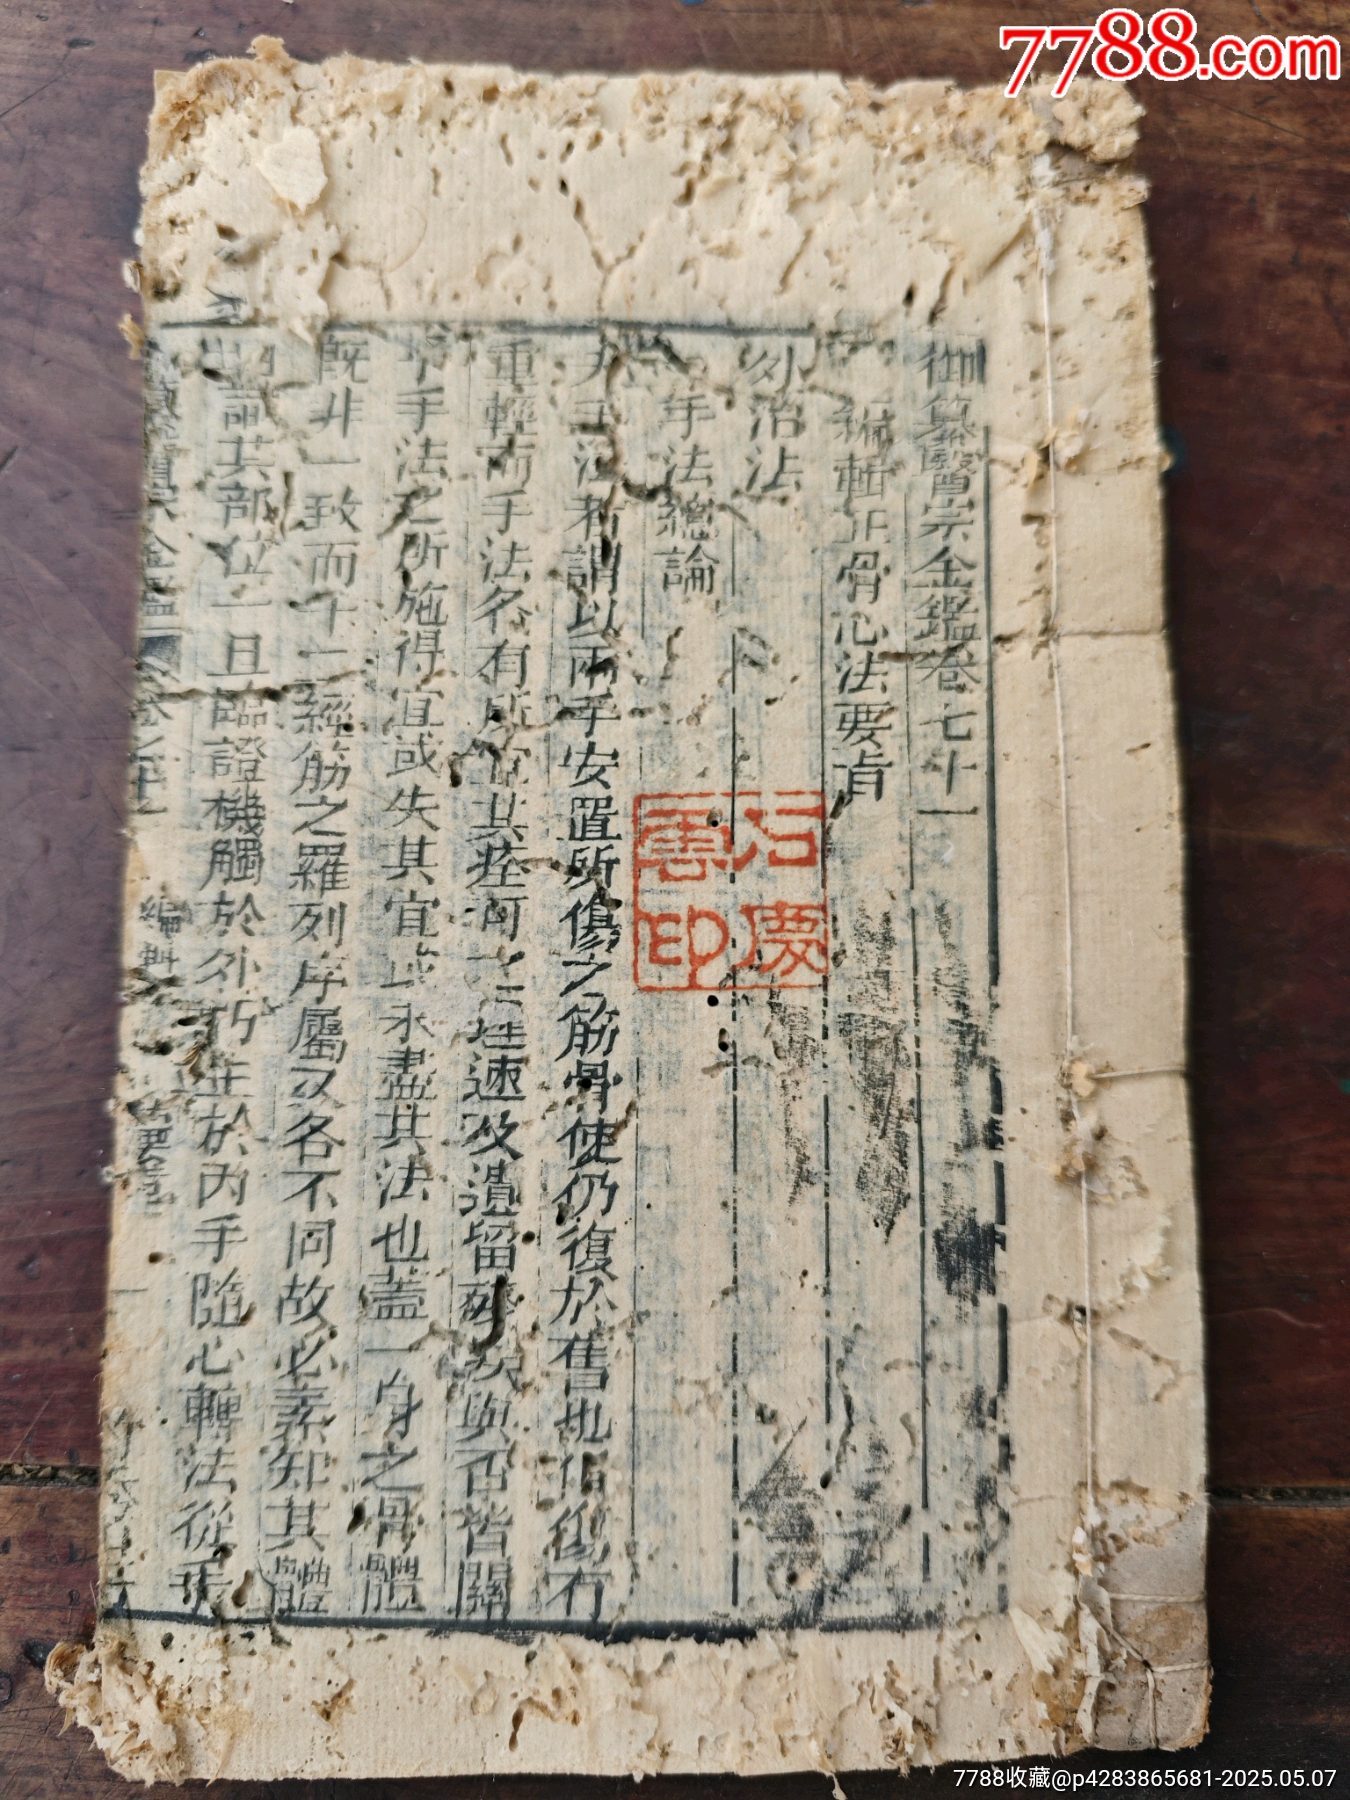 7788.com
御纂醫宗金鑑卷七十一
編輯正骨心法要旨
外治法
手法總論
夫手法者謂以兩手安置所傷之筋骨使仍復於舊也但傷有
重輕而手法各有所宜其痊可之遲速及遺留殘疾與否皆關
乎手法之所施得宜或失其宜或未盡其法也蓋一身之骨體
既非一致而十二經筋之羅列序屬又各不同故必素知其體
相識其部位一旦臨證機觸於外巧生於內手隨心轉法從手
金鑑 卷七十一 編輯 法要旨
石慶雲印
7788收藏@p4283865681-2025.05.07